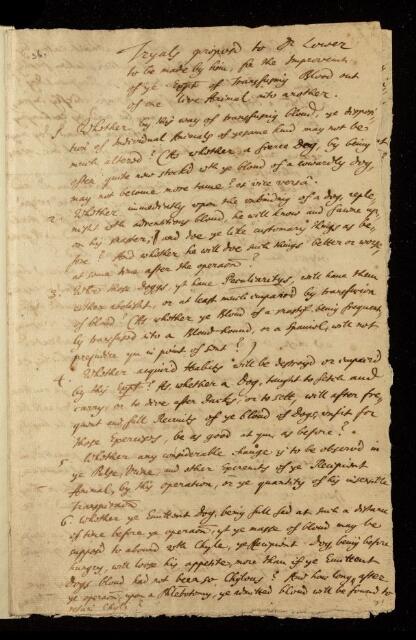 36.
Tryals proposed to Dr Lower
to be made by him, for the Improvemt
of ye Expt of Transfusing Blood out
of one live Animal into another.
1. Whether by this way of transfusing bloud, ye disposi-
tion of Individual Animals of ye same kind may not be
much altered? (As whether a fierce Dog, by being
often quite new stocked wth ye bloud of a cowardly dog,
may not become more tame? et vice versâ.
2. Whether immediatly upon the unbinding of a dog, reple-
nisht with adventitious bloud, he will know and faune
on his Master, and doe ye like customary things as be-
fore? And whether he will doe such things better or worse,
at some time after the operaõn?
3. Whether those doggs, yt have Peculiaritys, will have them
either abolisht, or at least much impaired by transfusion
of bloud? (As whether ye bloud of a mastif, being frequent-
ly transfused into a Bloud-hound, or a Spaniel, will not
prejudice ym in point of sent?)
4. Whether acquired Habits will be destroyd or impaired
by this Expt? As whether a Dog, taught to fetch and
carry, or to dive after Ducks, or to sett, will after fre-
quent and full Recruits of ye bloud of Dogs unfit for
those Exercises, be as good at ym, as before?
5. Whether any considerable change is to be observed in
ye Pulse, Urine, and other Excremts of ye Recipient
Animal, by this operation, or ye quantity of his insensible
Transpiration.
6. Whether ye Emittent Dog, being full fed at such a distance
of time before ye operaõn, yt ye masse of bloud may be
suppos'd to abound wth Chyle, ye Recipient Dog, being before
hungry, will loose his appetite, more than if ye Emittent
Dogs bloud had not been so Chylous? And how long, after
ye operaõn, upon a Phlebotomy, ye admitted bloud will be found to